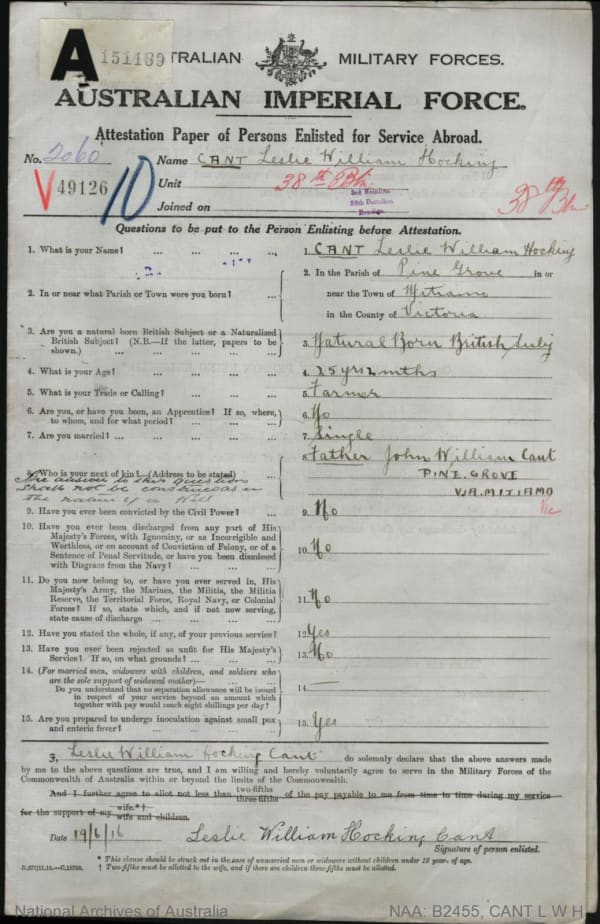 A 151189
AUSTRALIAN MILITARY FORCES.
AUSTRALIAN IMPERIAL FORCE.
Attestation Paper of Persons Enlisted for Service Abroad.
No. 2060 Name CANT Leslie William Hocking
V49126 10 Unit 38th Btn.
Joined on 38th Btn
Questions to be put to the Person Enlisting before Attestation.
1. What is your Name? ... ... ... ... 1. CANT Leslie William Hocking
2. In or near what Parish or Town were you born? ... 2. In the Parish of Pine Grove in or
near the Town of Mitiamo
in the County of Victoria
3. Are you a natural born British Subject or a Naturalized
British Subject? (N.B.—If the latter, papers to be
shown.) ... ... ... ... 3. Natural Born British Subj
4. What is your Age? ... ... ... ... 4. 25 yrs 2 mths
5. What is your Trade or Calling? ... ... ... 5. Farmer
6. Are you, or have you been, an Apprentice? If so, where,
to whom, and for what period? ... ... ... 6. No
7. Are you married? ... ... ... ... 7. Single
8. Who is your next of kin? (Address to be stated) 8. Father John William Cant
PINE GROVE
VIA. MITIAMO
Vic
The answer to this question
shall not be construed as in
the nature of a Will
9. Have you ever been convicted by the Civil Power? ... 9. No
10. Have you ever been discharged from any part of His
Majesty's Forces, with Ignominy, or as Incorrigible and
Worthless, or on account of Conviction of Felony, or of a
Sentence of Penal Servitude, or have you been dismissed
with Disgrace from the Navy? ... ... ... 10. No
11. Do you now belong to, or have you ever served in, His
Majesty's Army, the Marines, the Militia, the Militia
Reserve, the Territorial Force, Royal Navy, or Colonial
Forces? If so, state which, and if not now serving,
state cause of discharge ... ... ... 11. No
12. Have you stated the whole, if any, of your previous service? 12. Yes
13. Have you ever been rejected as unfit for His Majesty's
Service? If so, on what grounds? ... ... ... 13. No
14. (For married men, widowers with children, and soldiers who
are the sole support of widowed mother)—
Do you understand that no separation allowance will be issued
in respect of your service beyond an amount which
together with pay would reach eight shillings per day? 14. —
15. Are you prepared to undergo inoculation against small pox
and enteric fever? ... ... ... ... 15. Yes
I, Leslie William Hocking Cant do solemnly declare that the above answers made
by me to the above questions are true, and I am willing and hereby voluntarily agree to serve in the Military Forces of the
Commonwealth of Australia within or beyond the limits of the Commonwealth.
And I further agree to allot not less than two-fifths three-fifths of the pay payable to me from time to time during my service
for the support of my wife.*† wife and children.
Date 19/6/16 Leslie William Hocking Cant
Signature of person enlisted.
* This clause should be struck out in the case of unmarried men or widowers without children under 18 years of age.
† Two-fifths must be allotted to the wife, and if there are children three-fifths must be allotted.
National Archives of Australia NAA: B2455, CANT L W H